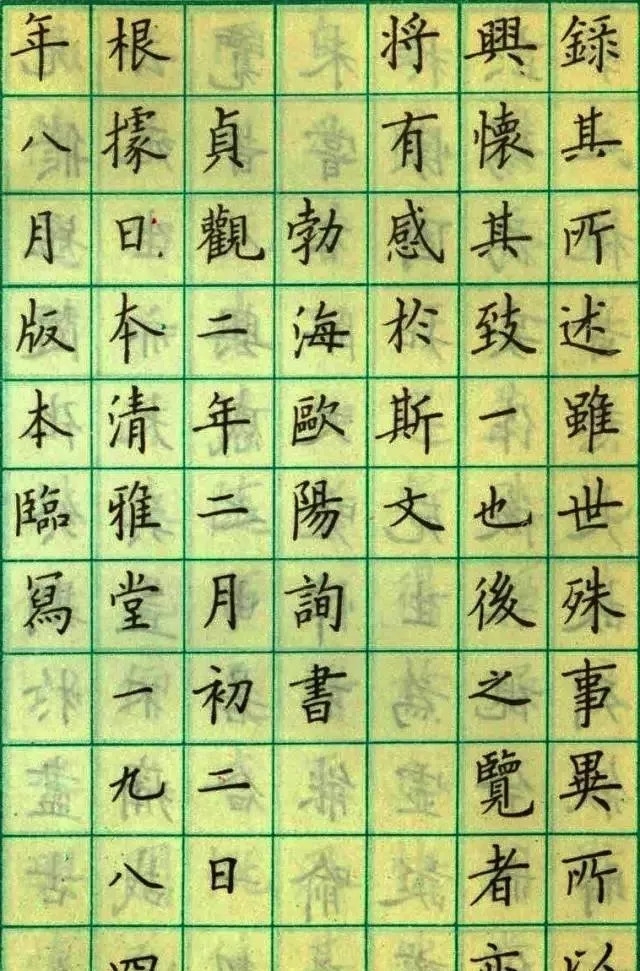 錄其所述雖世殊事異所以
興懷其致一也後之覽者亦
將有感於斯文
勃海歐陽詢書
貞觀二年二月初二日
根據日本清雅堂一九八四
年八月版本臨寫